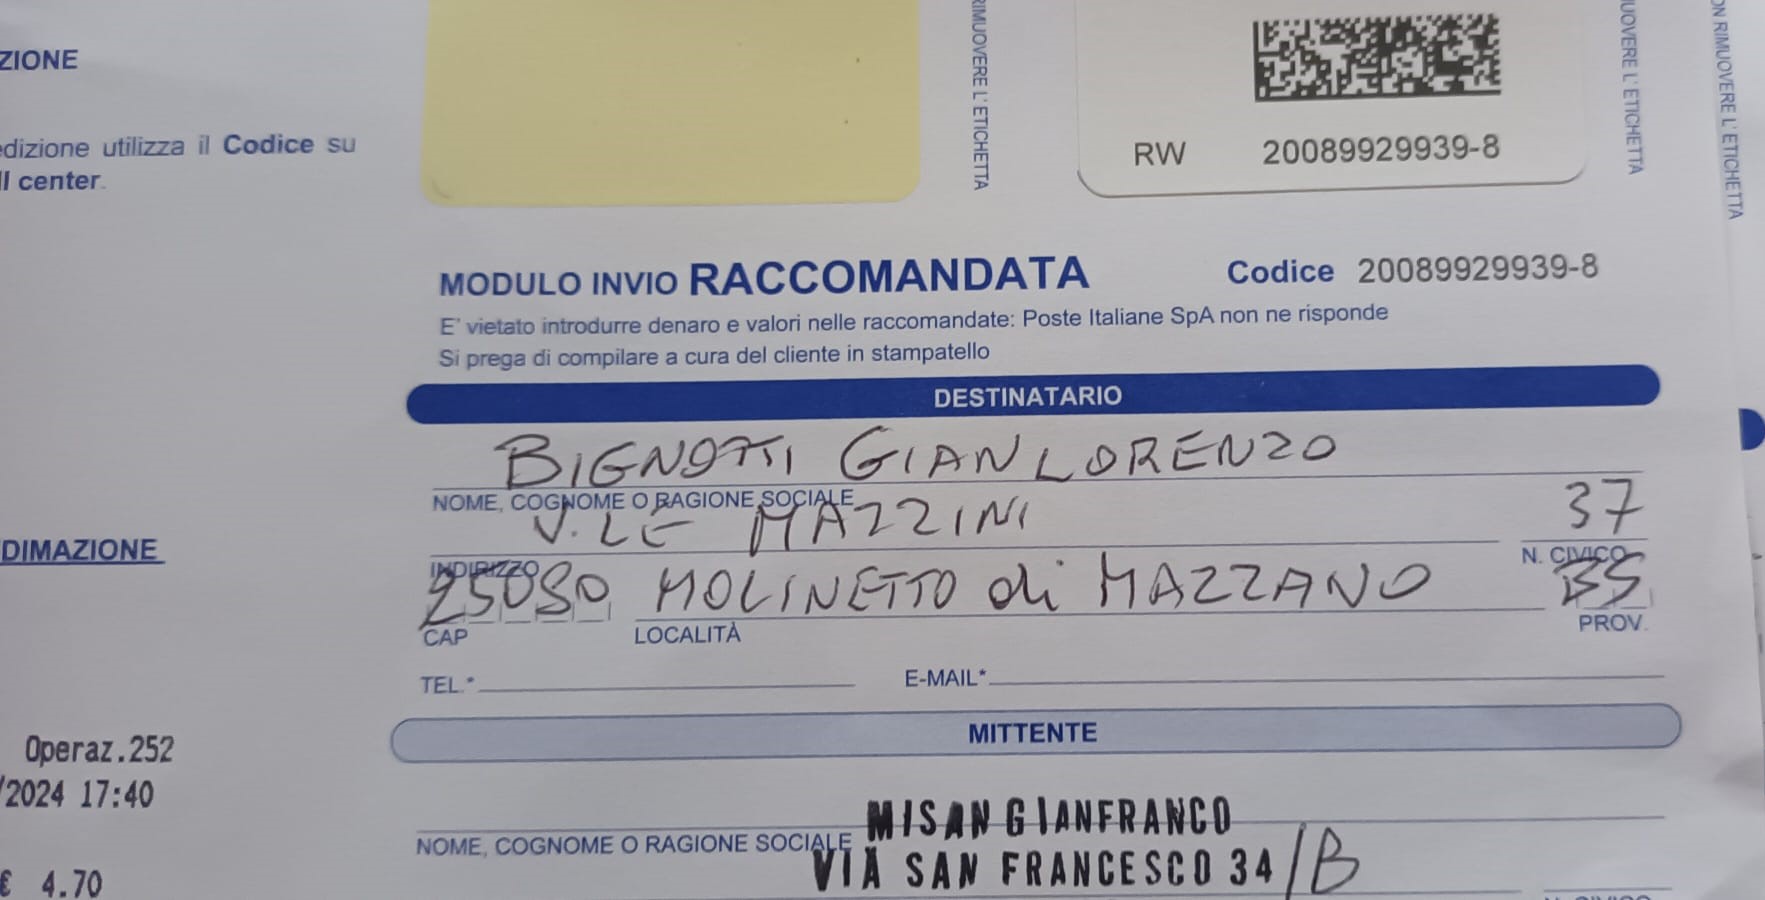 ZIONE
edizione utilizza il Codice su
ll center.
DIMAZIONE
Operaz.252
/2024 17:40
€ 4.70
RIMUOVERE L'ETICHETTA
RW 20089929939-8
UOVERE L'ETICHETTA
ON RIMUOVERE L'ETICHETTA
MODULO INVIO RACCOMANDATA Codice 20089929939-8
E' vietato introdurre denaro e valori nelle raccomandate: Poste Italiane SpA non ne risponde
Si prega di compilare a cura del cliente in stampatello
DESTINATARIO
BIGNOTTI GIANLORENZO
NOME, COGNOME O RAGIONE SOCIALE
V.LE MAZZINI 37
INDIRIZZO N. CIVICO
25080 MOLINETTO di MAZZANO BS
CAP LOCALITÀ PROV.
TEL.* E-MAIL*
MITTENTE
MISAN GIANFRANCO
NOME, COGNOME O RAGIONE SOCIALE
VIA SAN FRANCESCO 34/B